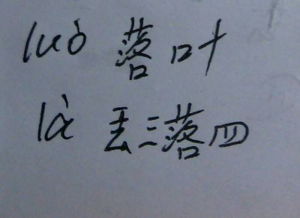 luò 落叶
là 丢三落四